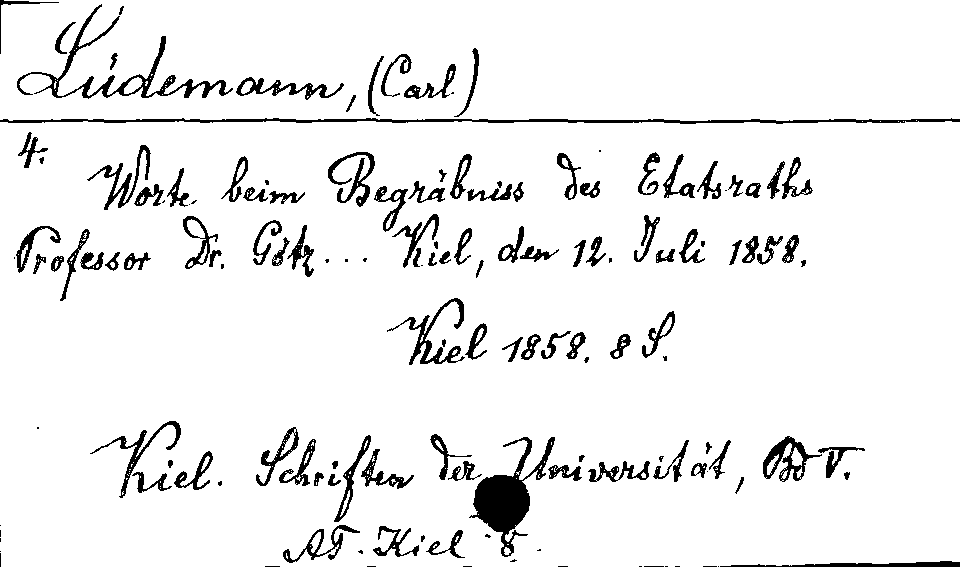 Lüdemann, (Carl)
4.
Worte beim Begräbniss des Etatsraths
Professor Dr. Götz... Kiel, den 12. Juli 1858.
Kiel 1858. 8 S.
Kiel. Schriften der Universität, Bd V.
AT. Kiel 8.